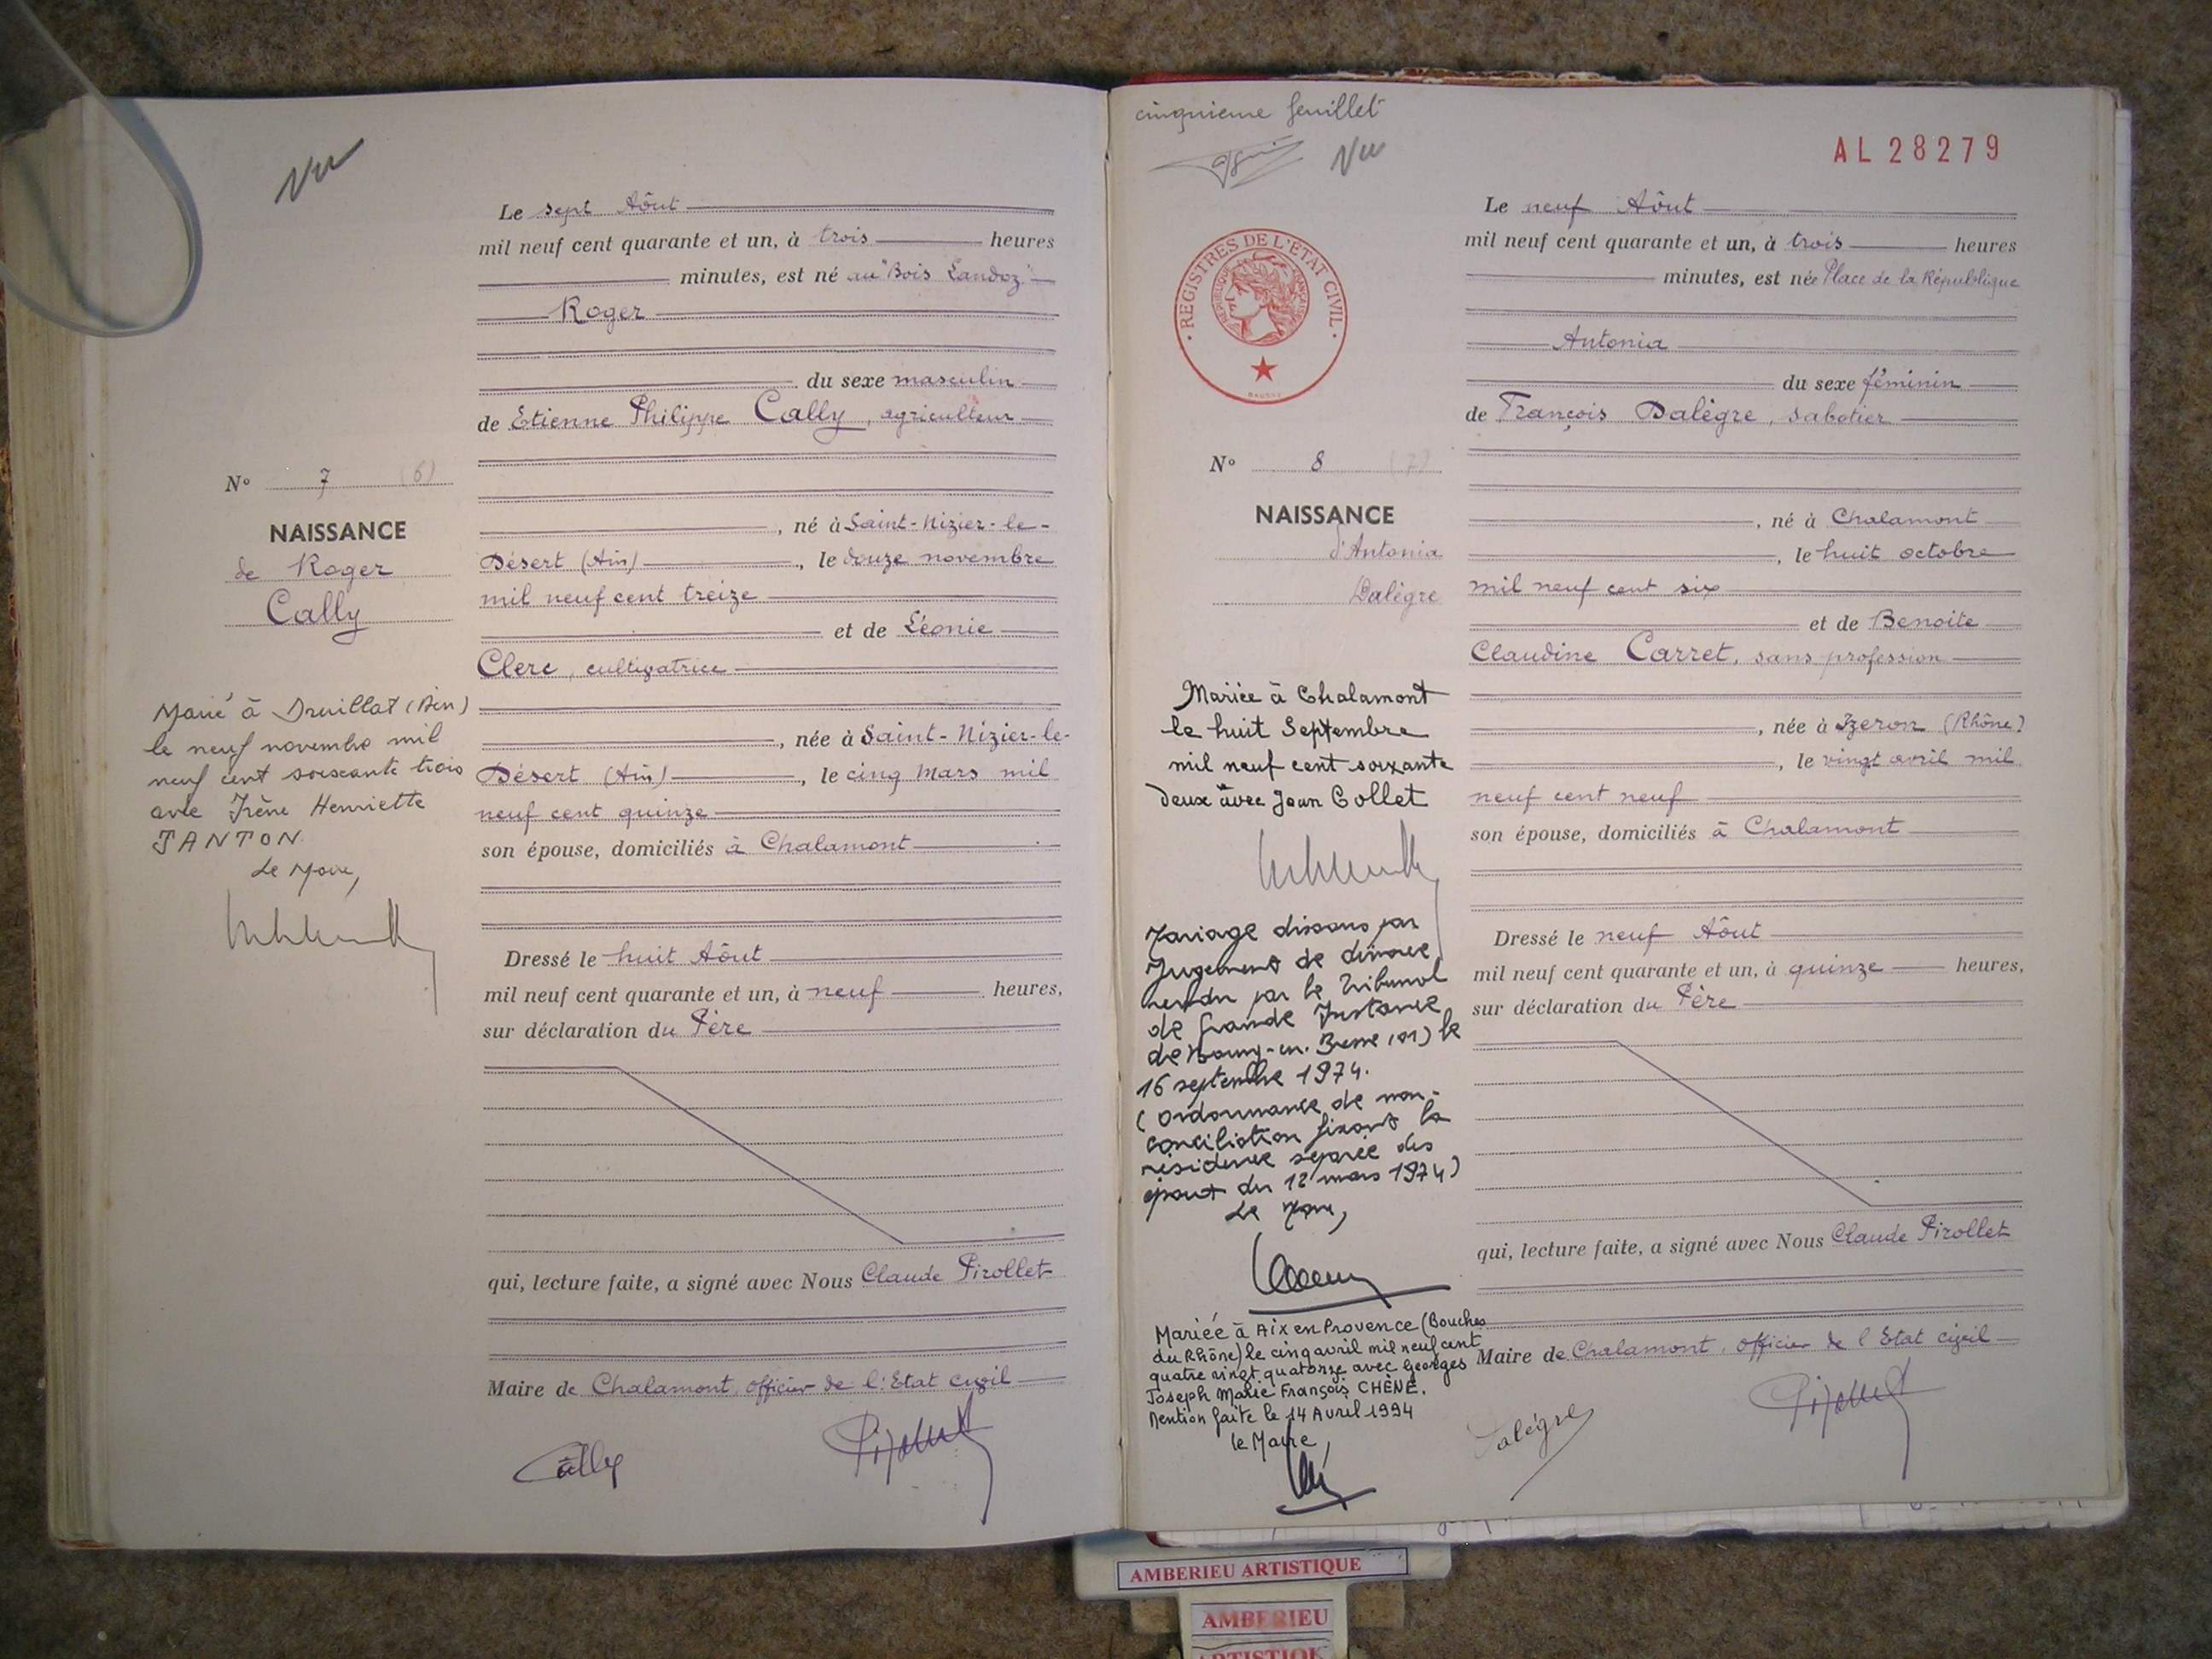 Vu
Le sept Aôut
mil neuf cent quarante et un, à trois heures
minutes, est né au "Bois Landoz"
Roger
du sexe masculin
de Etienne Philippe Cally, agriculteur
N° 7 (6)
NAISSANCE
de Roger
Cally
, né à Saint-Nizier-le-
Désert (Ain), le douze novembre
mil neuf cent treize
et de Léonie
Clerc, cultivatrice
, née à Saint-Nizier-le-
Désert (Ain), le cinq Mars mil
neuf cent quinze
son épouse, domiciliés à Chalamont
Marié à Druillat (Ain)
le neuf novembre mil
neuf cent soixante trois
avec Irène Henriette
TANTON.
Le Maire,
Dressé le huit Aôut
mil neuf cent quarante et un, à neuf heures,
sur déclaration du Père
qui, lecture faite, a signé avec Nous Claude Pirollet
Maire de Chalamont, officier de l'Etat civil
Cally
Pirollet
cinquieme feuillet
Vu
AL28279
REGISTRES DE L'ETAT CIVIL
REPUBLIQUE FRANÇAISE
Le neuf Aôut
mil neuf cent quarante et un, à trois heures
minutes, est née Place de la République
Antonia
du sexe féminin
de François Dalègre, sabotier
N° 8 (7)
NAISSANCE
d'Antonia
Dalègre
, né à Chalamont
, le huit octobre
mil neuf cent six
et de Benoite
Claudine Carret, sans profession
, née à Izeron (Rhône)
, le vingt avril mil
neuf cent neuf
son épouse, domiciliés à Chalamont
Mariée à Chalamont
le huit Septembre
mil neuf cent soixante
deux avec Jean Collet
Mariage dissous par
Jugement de divorce
rendu par le Tribunal
de Grande Instance
de Bourg-en-Bresse (01) le
16 septembre 1974.
(Ordonnance de non-
conciliation fixant la
résidence séparée des
époux du 12 mars 1974)
Le Maire,
Mariée à Aix en Provence (Bouches
du Rhône) le cinq avril mil neuf cent
quatre vingt quatorze avec Georges
Joseph Marie François CHÊNE.
Mention faite le 14 Avril 1994
le Maire,
Dressé le neuf Aôut
mil neuf cent quarante et un, à quinze heures,
sur déclaration du Père
qui, lecture faite, a signé avec Nous Claude Pirollet
Maire de Chalamont, officier de l'Etat civil
Dalègre
Pirollet
AMBERIEU ARTISTIQUE
AMBERIEU
ARTISTIQUE